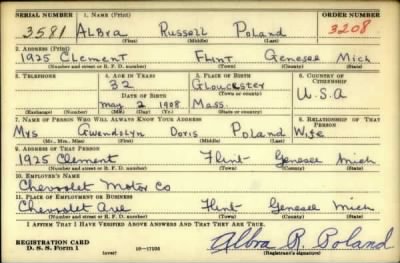 SERIAL NUMBER 1. NAME (Print) ORDER NUMBER
3581 ALBRA Russell Poland 3208
(First) (Middle) (Last)
2. ADDRESS (Print)
1925 Clement Flint Genesee Mich
(Number and street or R. F. D. number) (Town) (County) (State)
3. TELEPHONE 4. AGE IN YEARS 5. PLACE OF BIRTH 6. COUNTRY OF CITIZENSHIP
32 Gloucester
DATE OF BIRTH (Town or county) U.S.A
May 2 1908 Mass.
(Exchange) (Number) (Mo.) (Day) (Yr.) (State or country)
7. NAME OF PERSON WHO WILL ALWAYS KNOW YOUR ADDRESS 8. RELATIONSHIP OF THAT PERSON
Mrs Gwendolyn Doris Poland Wife
(Mr., Mrs., Miss) (First) (Middle) (Last)
9. ADDRESS OF THAT PERSON
1925 Clement Flint Genesee Mich
(Number and street or R. F. D. number) (Town) (County) (State)
10. EMPLOYER'S NAME
Chevrolet Motor Co
11. PLACE OF EMPLOYMENT OR BUSINESS
Chevrolet Ave Flint Genesee Mich
(Number and street or R. F. D. number) (Town) (County) (State)
I AFFIRM THAT I HAVE VERIFIED ABOVE ANSWERS AND THAT THEY ARE TRUE.
REGISTRATION CARD
D. S. S. Form 1 (over) 16—17105 Albra R. Poland
(Registrant's signature)